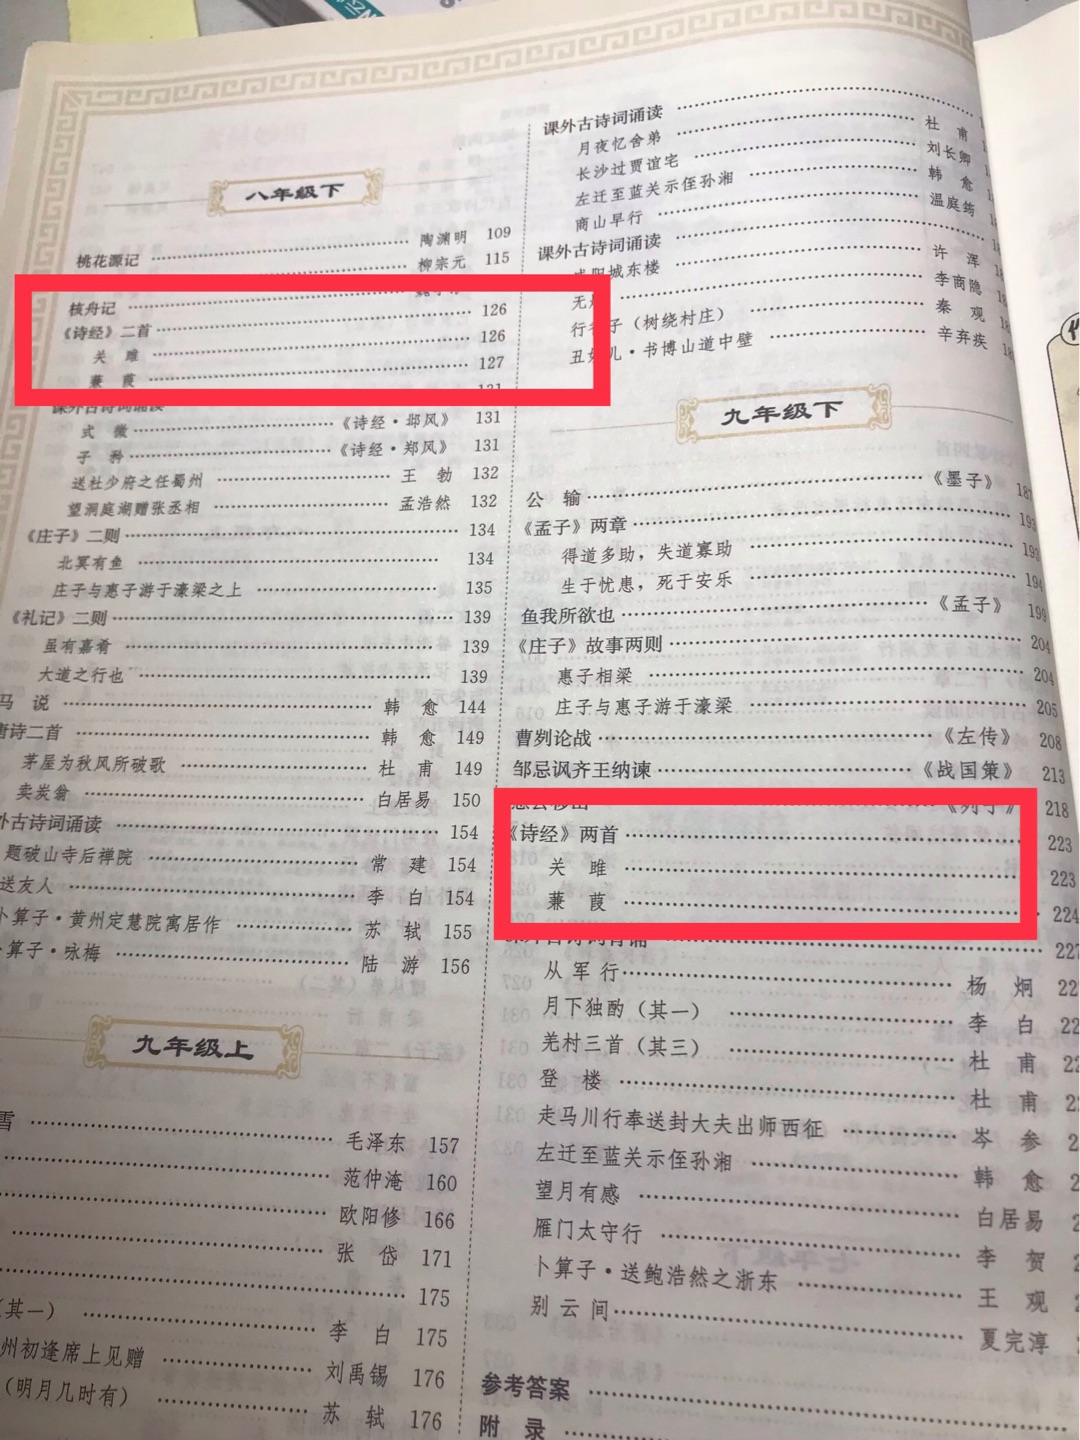 八年级下
桃花源记 陶渊明 109
柳宗元 115
核舟记
《诗经》二首 126
关 雎 126
蒹 葭 127
131
课外古诗词诵读
式 微 《诗经·邶风》 131
子 衿 《诗经·郑风》 131
送杜少府之任蜀州 王 勃 132
望洞庭湖赠张丞相 孟浩然 132
《庄子》二则 134
北冥有鱼 134
庄子与惠子游于濠梁之上 135
《礼记》二则 139
虽有嘉肴 139
大道之行也 139
马 说 韩 愈 144
唐诗二首 韩 愈 149
茅屋为秋风所破歌 杜 甫 149
卖炭翁 白居易 150
外古诗词诵读 154
题破山寺后禅院 常 建 154
送友人 李 白 154
卜算子·黄州定慧院寓居作 苏 轼 155
卜算子·咏梅 陆 游 156
九年级上
雪 毛泽东 157
范仲淹 160
欧阳修 166
张 岱 171
175
(其一) 李 白 175
州初逢席上见赠 刘禹锡 176
(明月几时有) 苏 轼 176
课外古诗词诵读
月夜忆舍弟 杜 甫
长沙过贾谊宅 刘长卿
左迁至蓝关示侄孙湘 韩 愈
商山早行 温庭筠
课外古诗词诵读
咸阳城东楼 许 浑
无 李商隐
行 子(树绕村庄) 秦 观
丑 儿·书博山道中壁 辛弃疾
九年级下
公 输 《墨子》 187
《孟子》两章 193
得道多助,失道寡助 193
生于忧患,死于安乐 194
鱼我所欲也 《孟子》 199
《庄子》故事两则 204
惠子相梁 204
庄子与惠子游于濠梁 205
曹刿论战 《左传》 208
邹忌讽齐王纳谏 《战国策》 213
愚公移山 《列子》 218
《诗经》两首 223
关 雎 223
蒹 葭 224
课外古诗词背诵 227
从军行 杨 炯 22
月下独酌(其一) 李 白 22
羌村三首(其三) 杜 甫 22
登 楼 杜 甫 2
走马川行奉送封大夫出师西征 岑 参 2
左迁至蓝关示侄孙湘 韩 愈 2
望月有感 白居易 2
雁门太守行 李 贺 2
卜算子·送鲍浩然之浙东 王 观
别云间 夏完淳
参考答案
附 录